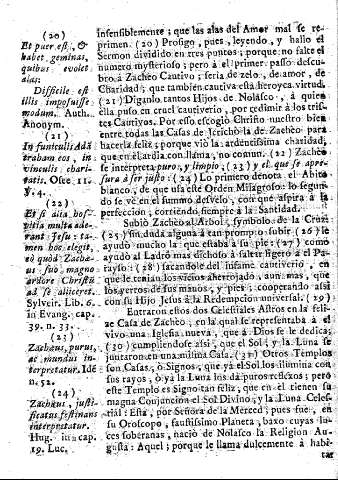 (20)
Et puer est, &
habet geminas,
quibus evolet
alas:
Difficile est
illis imposuisse
modum. Auth.
Anonym.
(21)
In funiculis Adã
trabam eos, in
vinculis chari-
tatis. Osee 11.
v. 4.
(22)
Et si alta hos-
pitia multa ade-
rant Jesu: ta-
men hos elegit,
eò quòd Zachæ-
us suo magno
ardore Christū
ad se allicerct.
Sylveir. Lib. 6.
in Evang. cap.
39. n. 33.
(23)
Zachæus, purus,
ac mundus in-
terpretatur. Idē
n. 52.
(24)
Zachæus, justi-
ficatus festinans
interpretatur.
Hug. in cap.
19. Luc.
insensiblemente; que las alas del Amor mal se re-
primen. (20) Prosigo, pues, leyendo, y hallo el
Sermon dividido en tres puntos; porque no falte el
numero mysterioso; pero à el primer passo descu-
bro à Zachèo Cautivo; seria de zelo, de amor, de
Charidad; que tambien cautiva esta heroyca virtud.
(21) Diganlo tantos Hijos de Nolasco, à quien
ella puso en cruel cautiverio, por redimir à los tris-
tes Cautivos. Por esso escogiò Christo nuestro bien
entre todas las Casas de Jerichò la de Zachèo para
hacerla feliz; porque viò la ardentissima charidad,
que en el ardia con llama, no comun. (22) Zachèo
se interpreta puro, y limpio, (23) y el que se apre-
sura à ser justo: (24) Lo primero denota el Abito
blanco, de que usa este Orden Milagroso: lo segun-
do se vè en el summo desvelo, con que aspira à la
perfeccion, corriendo siempre à la Santidad.
Subiò Zachèo al Arbol, symbolo de la Cruz:
(25) sin duda alguna à tan prompto subir (26) le
ayudò mucho la que estaba à su pie; (27) como
ayudò al Ladrò mas dichoso à saltar ligero à el Pa-
rayso: (28) sacandole del infame cautiverio, en
que le tenian los vicios aherrojado, aun mas, que
los yerros de sus manos, y pies; cooperando assi
con su Hijo Jesus à la Redempcion universal. (29)
Entraron estos dos Celestiales Astros en la feli-
ze Casa de Zachèo; en la qual se representaba al
vivo una Iglesia nueva, que à Dios se le dedica;
(30) cumpliendose assi, que el Sol, y la Luna se
juntaron en una misma Casa. (31) Otros Templos
son Casas, ò Signos, que yà el Sol los illumina con
sus rayos, ò yà la Luna los dà puros reflexos; pero
este Templo es Signo tan feliz, que en èl tienen su
magna Conjuncion el Sol Divino, y la Luna Celes-
tial: Esta, por Señora de la Merced; pues fuè, en
su Oroscopo, faustissimo Planeta, baxo cuyas lu-
ces soberanas, naciò de Nolasco la Religion Au-
gusta: Aquel; porque le llama dulcemente à habi-
tar